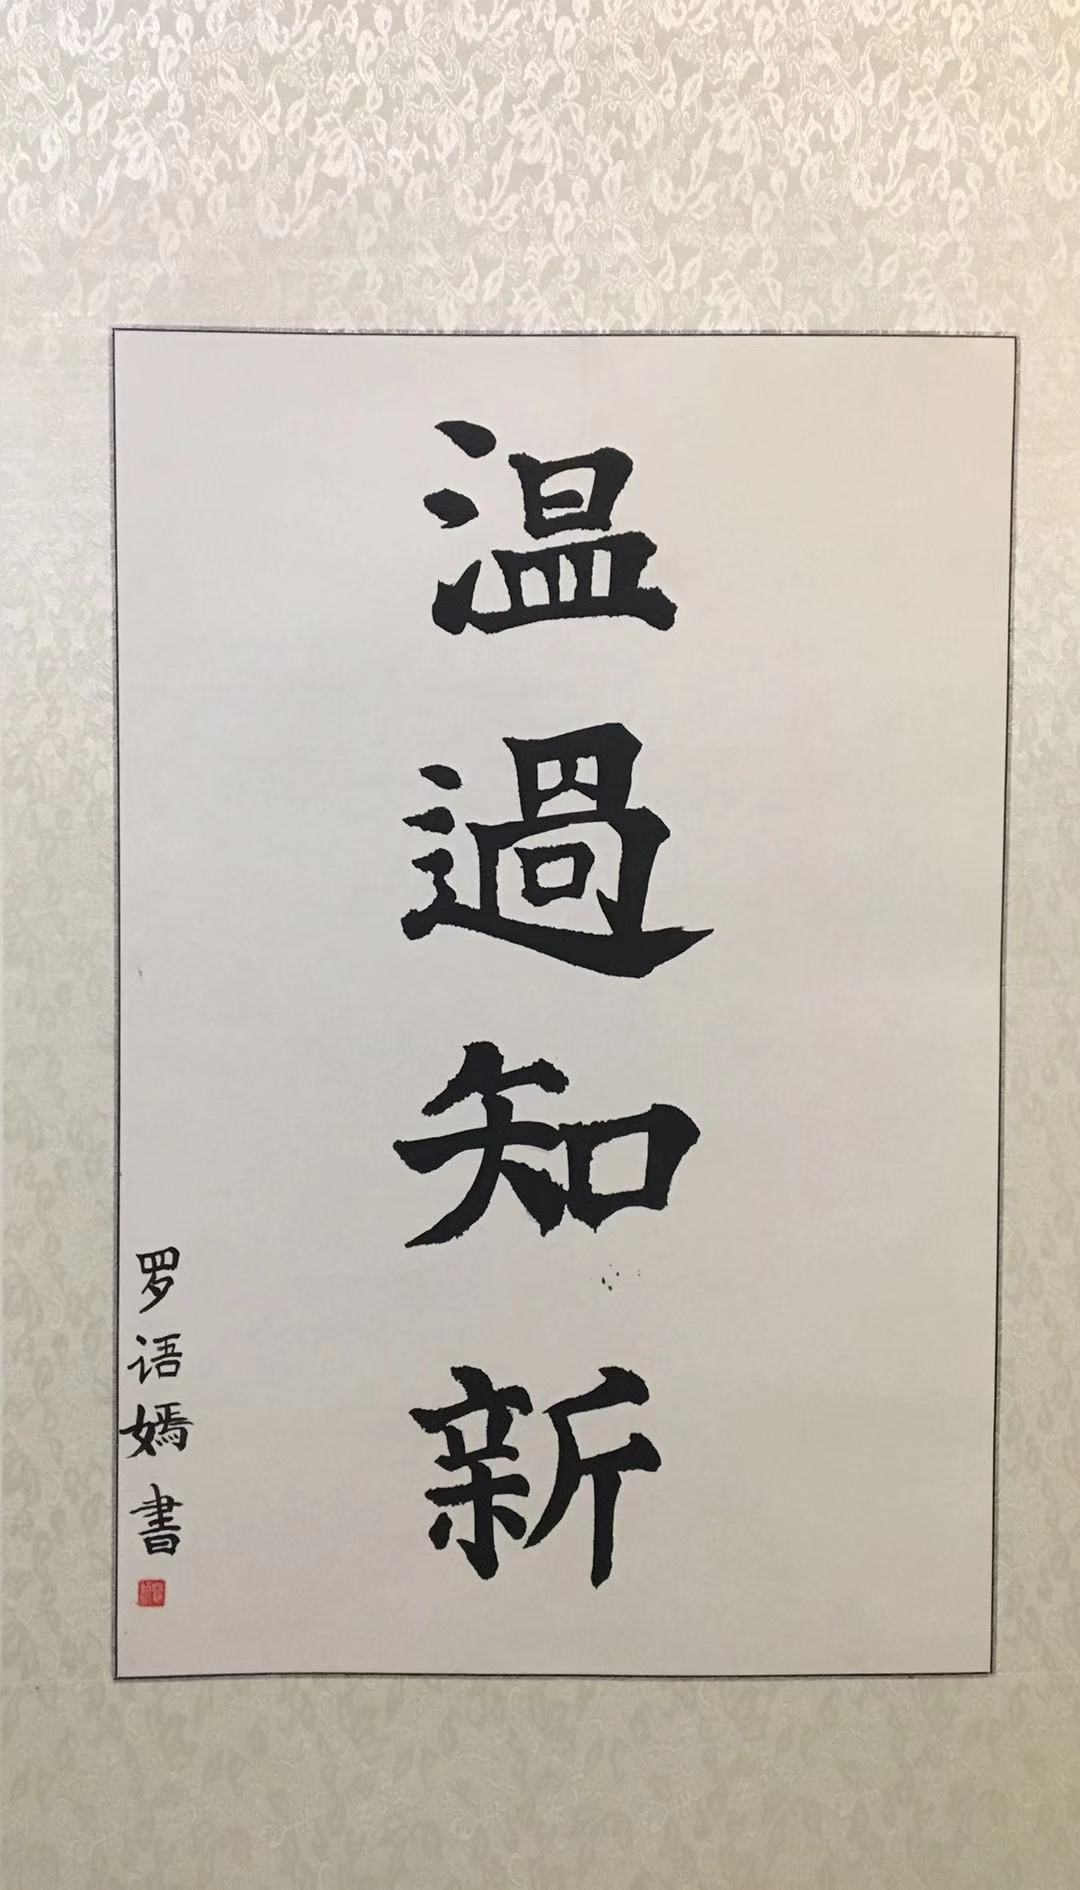 温過知新
罗语嫣書